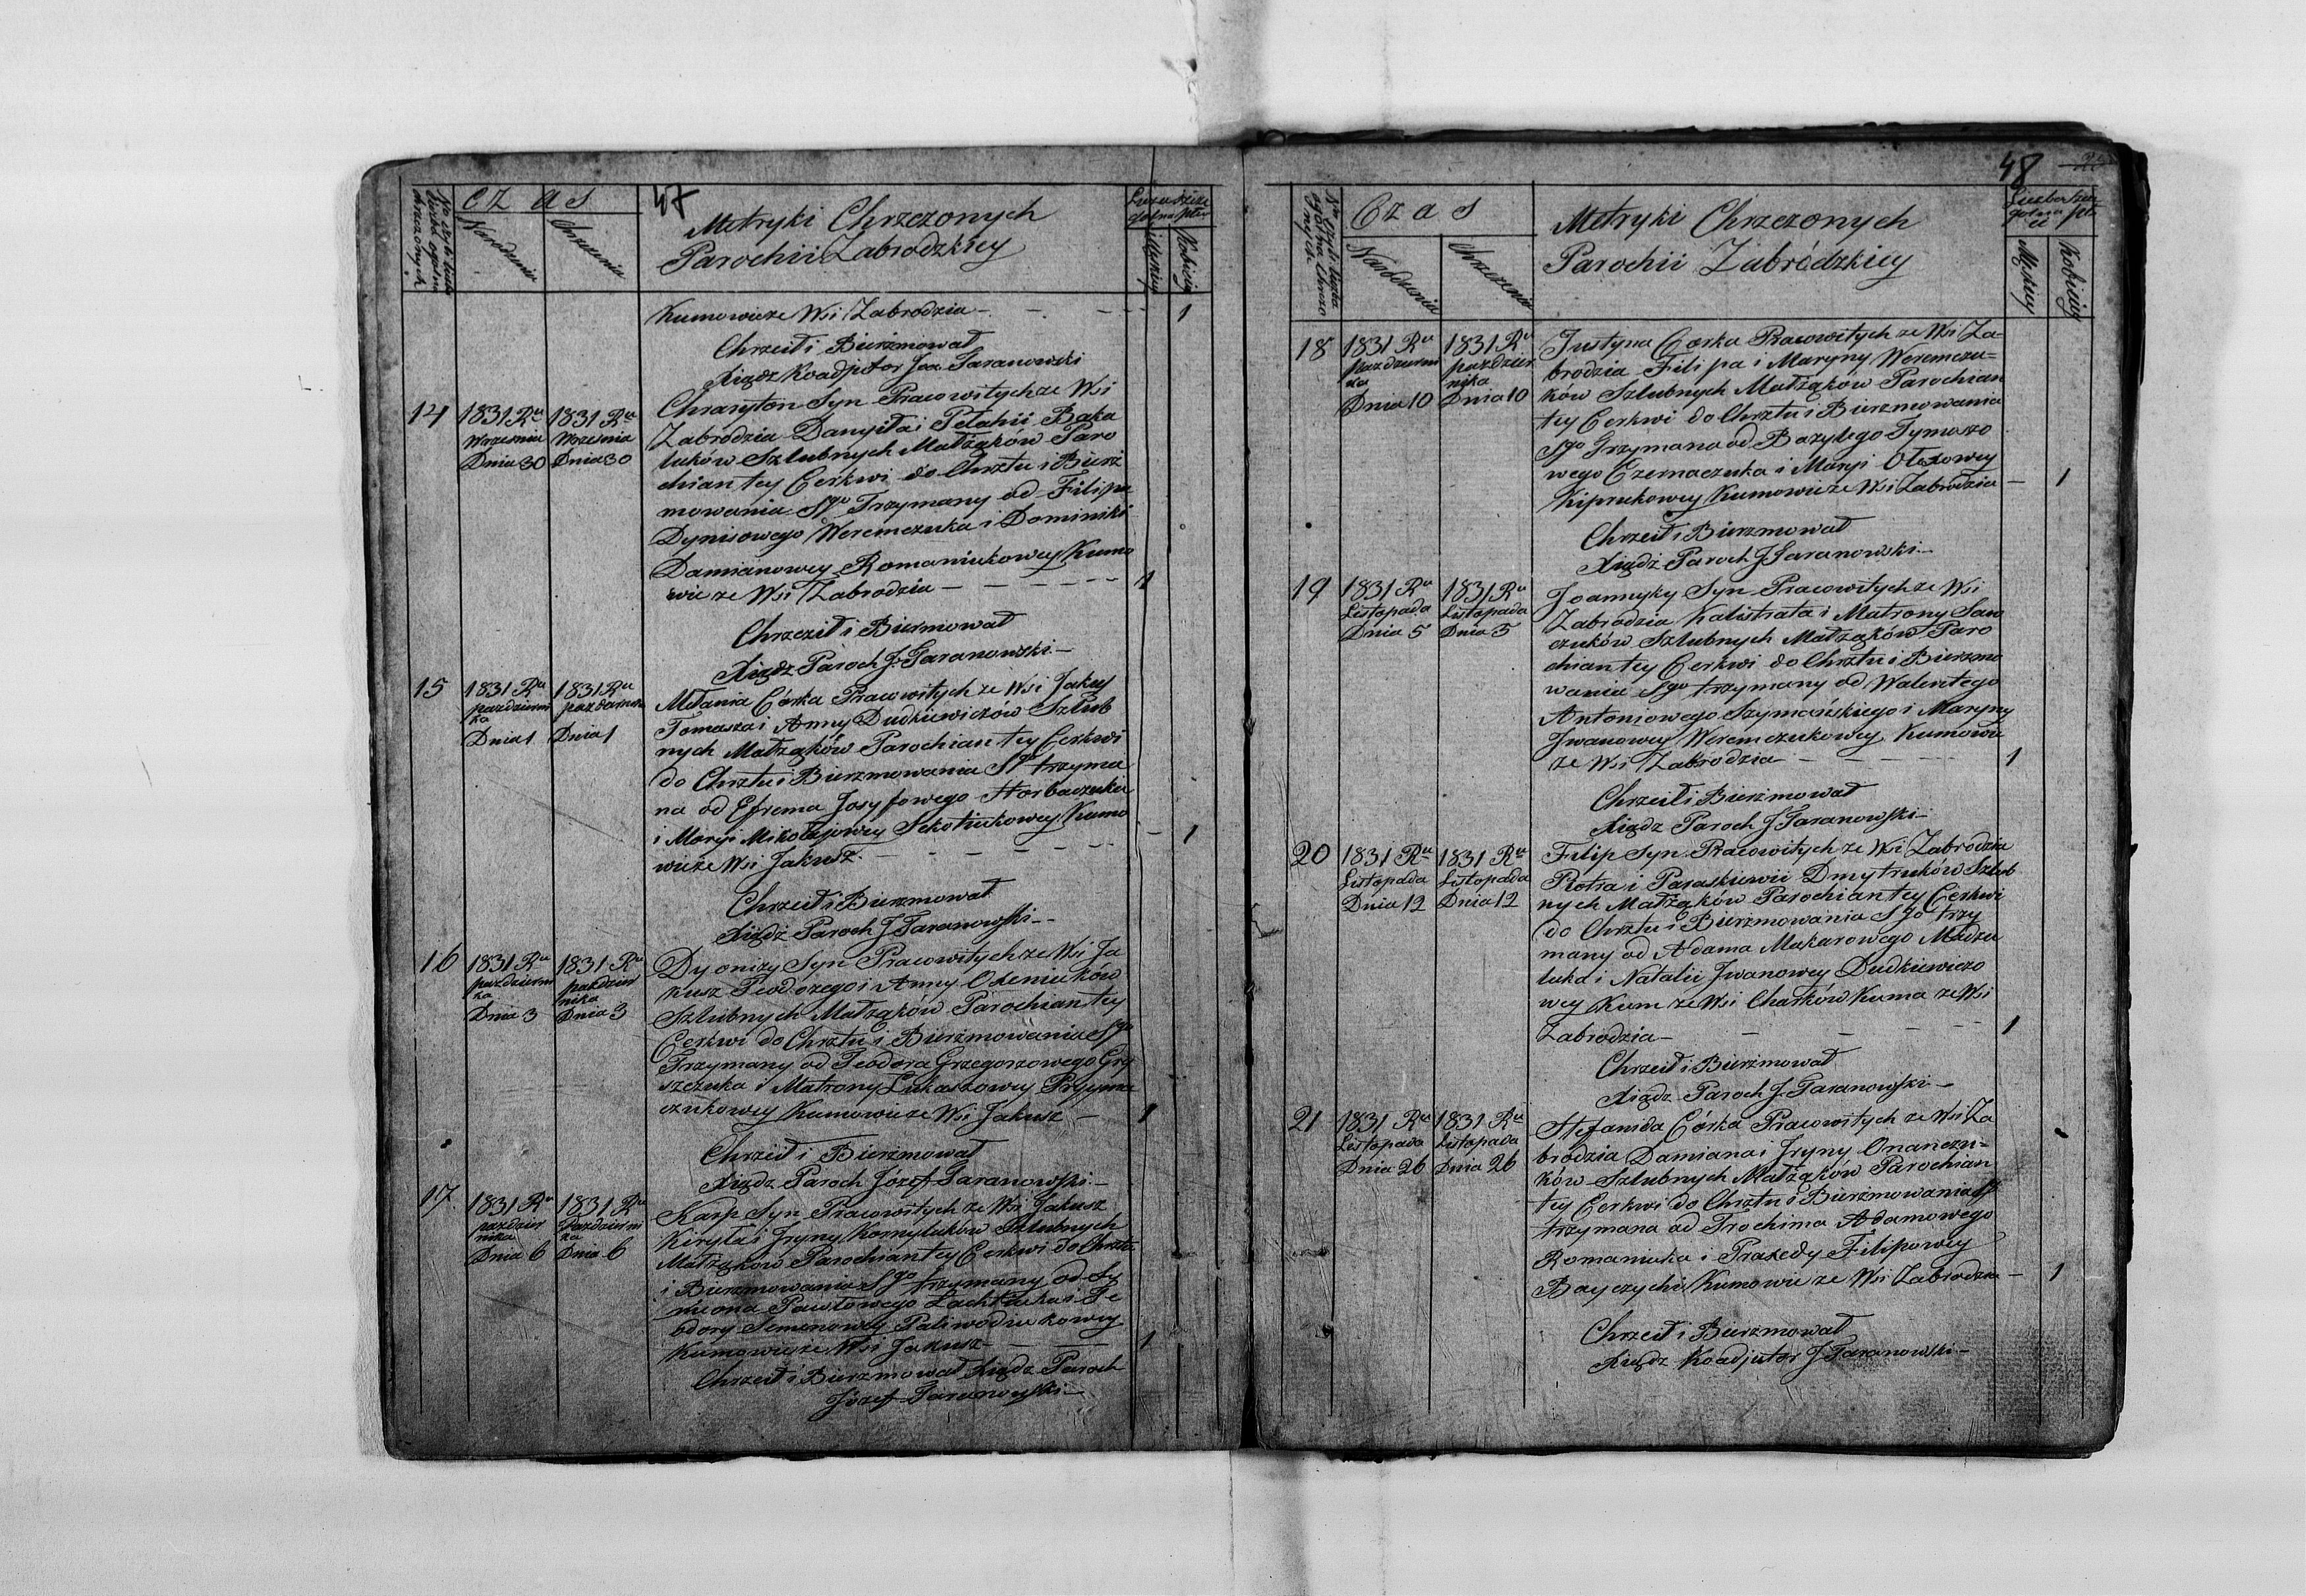 Cz as
47
Narodzenia
Chrzczenia
Metryki Chrzczonych
Parochii Zabrodzkiey
Męskiey
Kobiecey
Kumowie ze Wsi Zabrodzia — 1
Chrzcił i Bierzmował
Xiądz Koadjutor Joa. Taranowski
14
1831 Ru
Września
Dnia 30
1831 Ru
Września
Dnia 30
Syn Pracowitych ze Wsi
Zabrodzia Danyiła i Pelahii Baka
luków Szlubnych Małżąków Paro
chian tey Cerkwi do Chrztu i Bierz
mowania Sgo Trzymany od Filipa
Dynisowego Weremczuka i Dominiki
Damianowey Romaniukowey Kumo
wie ze Wsi Zabrodzia — 1
Chrzcził i Biermował
Xiądz Paroch J. Taranowski —
15
1831 Ru
pazdzierni
ka
Dnia 1
1831 Ru
Dnia 1
Mełania Córka Pracowitych ze Wsi Jakusz
Tomasza i Anny Dudkiewiczów Szlub
nych Małżąków Parochian tey Cerkwi
do Chrztu i Bierzmowania Sgo trzyma
na od Efrema Josyfowego Horbaczuka
i Maryi Mikołajowey Kumo
wie ze Wsi Jakusz — 1
Chrzcił i Bierzmował
Xiądz Paroch J Taranowski —
16
1831 Ru
pazdzierni
ka
Dnia 3
1831 Ru
pazdzier
nika
Dnia 3
Dyonizy Syn Pracowitych ze Wsi Ja
kusz Teodozego i Anny Oxeniuków
Szlubnych Małżąków Parochian tey
Cerkwi do Chrztu i Bierzmowania Sgo
Trzymany od Teodora Grzegorzowego Gry
szczuka i Matrony Łukaszowey
czukowey Kumowie ze Wsi Jakusz — 1
Chrzcił i Bierzmował
Xiądz Paroch Józef Taranowski —
17
1831 Ru
pazdzier
nika
Dnia 6
1831 Ru
Pazdzierni
ka
Dnia 6
Karp Syn Pracowitych ze Wsi Jakusz
Kiryła i Jryny Kornyluków Szlubnych
Małżąków Parochian tey Cerkwi do Chrztu
i Bierzmowania Sgo trzymany od Sy
meona Pawłowego i Te
odory Semenowey Paliwodziukowey
Kumowie ze Wsi Jakusz — 1
Chrzcił i Bierzmował Xiądz Paroch
Józef Taranowski —
48
Cz as
Narodzenia
Chrzczenia
Metryki Chrzczonych
Parochii Zabródzkiey
Męskiey
Kobiecey
18
1831 Ru
pazdzierni
ka
Dnia 10
1831 Ru
pazdzier
nika
Dnia 10
Justyna Corka Pracowitych ze Wsi Za-
brodzia Filipa i Maryny Weremczu-
ków Szlubnych Małżąków Parochian
tey Cerkwi do Chrztu i Bierzmowania
Sgo Trzymana od Bazylego Tymoszo
wego Czernaczuka i Maryi Olexowey
Kiprukowey Kumowie ze Wsi Zabrodzia — 1
Chrzcił i Bierzmował
Xiądz Paroch J Taranowski —
19
1831 Ru
Listopada
Dnia 5
1831 Ru
Listopada
Dnia 5
Joannyky Syn Pracowitych ze Wsi
Zabrodzia Kalistrata i Matrony Saw
czuków Szlubnych Małżąków Paro
chian tey Cerkwi do Chrztu i Bierzmo
wania Sgo trzymany od Walentego
Antoniowego Szymańskiego i Maryny
Jwanowey Weremczukowey Kumowie
ze Wsi Zabródzia — 1
Chrzcił i Bierzmował
Xiądz Paroch J Taranowski —
20
1831 Ru
Listopada
Dnia 12
1831 Ru
Listopada
Dnia 12
Filip Syn Pracowitych ze Wsi Zabródzia
Piotra i Paraskiewii Dmytruków Szlub
nych Małżąków Parochian tey Cerkwi
do Chrztu i Bierzmowania Sgo trzy
many od Adama Makarowego Madzu
luka i Natalii Jwanowey Dudkiewiczo
wey Kum ze Wsi Charków Kuma ze Wsi
Zabrodzia — 1
Chrzcił i Bierzmował
Xiądz Paroch J. Taranowski —
21
1831 Ru
Listopada
Dnia 26
1831 Ru
Listopada
Dnia 26
Stefanida Córka Pracowitych ze Wsi Za
brodzia Damiana i Jryny Onanczu-
ków Szlubnych Małżąków Parochian
tey Cerkwi do Chrztu i Bierzmowania Sgo
trzymana od Trochima Adamowego
Romaniuka i Praxedy Filipowey
Bayczychi Kumowie ze Wsi Zabrodzia — 1
Chrzcił i Bierzmował
Xiądz Koadjutor J Taranowski —